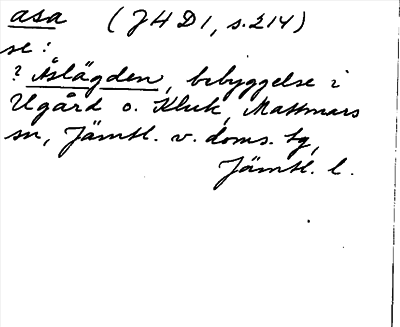 asa (JHD1, s.214)
se:
? Åslägden, bebyggelse i
Ugård o. Kluk, Mattmars
sn, Jämtl. v. doms. tg,
Jämtl. l.